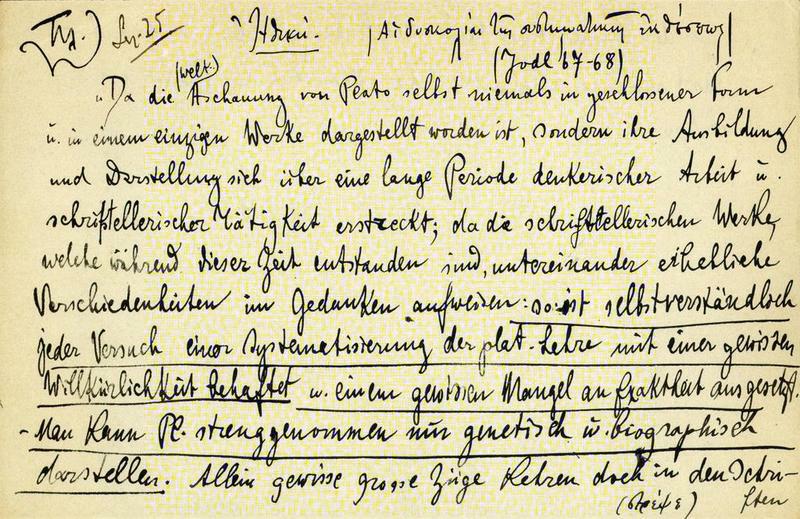 Σημ. 25 Ἠθική. (Αἱ δυσκολίαι τῆς
(Jodl 67-68)
(welt.)
„Da die Aschauung von Peato selbst niemals in geschlossener Form
u. in einem einzigen Werke dargestellt worden ist, sondern ihre Ausbildung
und Darstellung sich über eine lange Periode denkerischer Arbeit u.
schriftstellerischer Tätigkeit erstreckt; da die schriftstellerischen Werke,
welche während dieser Zeit entstanden sind, untereinander erhebliche
Verschiedenheiten im Gedanken aufweisen: so ist selbstverständlich
jeder Versuch einer Systematisierung der plat. Lehre mit einer gewissen
Willkürlichkeit behaftet u. einem gewissen Mangel an Exaktheit ausgesetzt.
- Man kann Pl. strenggenommen nur genetisch u. biographisch
darstellen. Allein gewisse grosse Züge kehren doch in den Schri-
ften
(στρέψε)